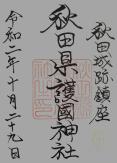 秋田城跡鎮座
秋田県護國神社
令和二年十月二十九日